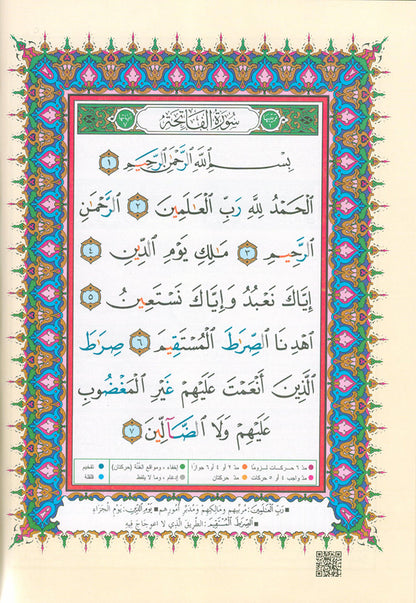 سُورَةُ الْفَاتِحَةِ
بِسْمِ ٱللَّهِ ٱلرَّحْمَٰنِ ٱلرَّحِيمِ ١
ٱلْحَمْدُ لِلَّهِ رَبِّ ٱلْعَٰلَمِينَ ٢ ٱلرَّحْمَٰنِ
ٱلرَّحِيمِ ٣ مَٰلِكِ يَوْمِ ٱلدِّينِ ٤
إِيَّاكَ نَعْبُدُ وَإِيَّاكَ نَسْتَعِينُ ٥
ٱهْدِنَا ٱلصِّرَٰطَ ٱلْمُسْتَقِيمَ ٦ صِرَٰطَ
ٱلَّذِينَ أَنْعَمْتَ عَلَيْهِمْ غَيْرِ ٱلْمَغْضُوبِ
عَلَيْهِمْ وَلَا ٱلضَّآلِّينَ ٧
مدّ ٦ حركات لزوماً مدّ ٢ أو ٤ أو ٦ جوازاً إخفاء، ومواقع الغُنَّة (حركتان) تفخيم
مدّ واجب ٤ أو ٥ حركات مدّ حركتان إدغام، وما لا يُلفظ قلقلة
رَبِّ الْعَالَمِينَ: مُرَبِّيهِم وَمَالِكِهِمْ وَمُدَبِّر أُمُورِهِم يَوْمِ الدِّينِ: يَوْمِ الْجَزَاءِ
الصِّرَاطَ الْمُسْتَقِيمَ: الطَّرِيقَ الَّذِي لَا اعْوِجَاجَ فِيهِ